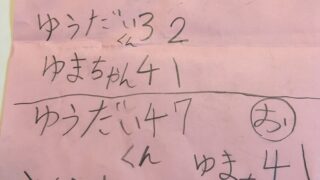 ゆうだいくん32
ゆまちゃん41
ゆうだいくん47
ゆま 41